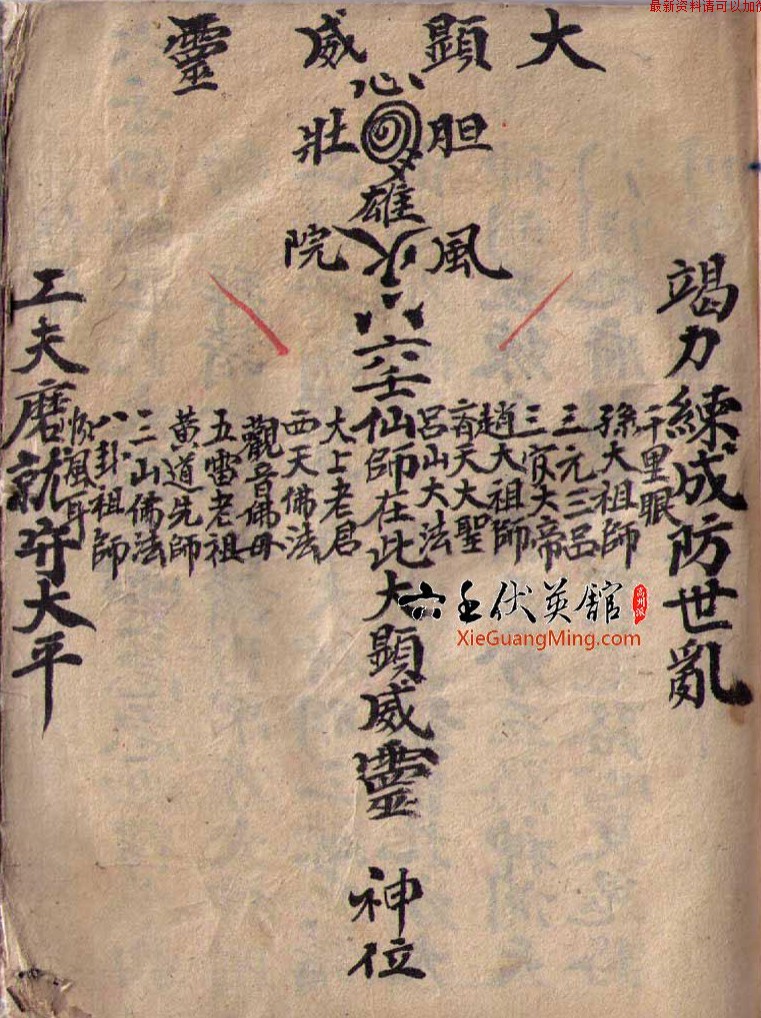 最新资料请可以加微
大顯威靈
心
胆壯
雄
風院
竭力練成防世亂
千里眼
孫大祖師
三元三品
三官大帝
趙大祖師
齊天大聖
呂山大法
六壬仙師在此大顯威靈 神位
大上老君
西天佛法
觀音佛母
五雷老祖
黃道先師
三山儒法
八卦祖師
順風耳
工夫磨就守大平
六壬伏英舘
高州派
XieGuangMing.com